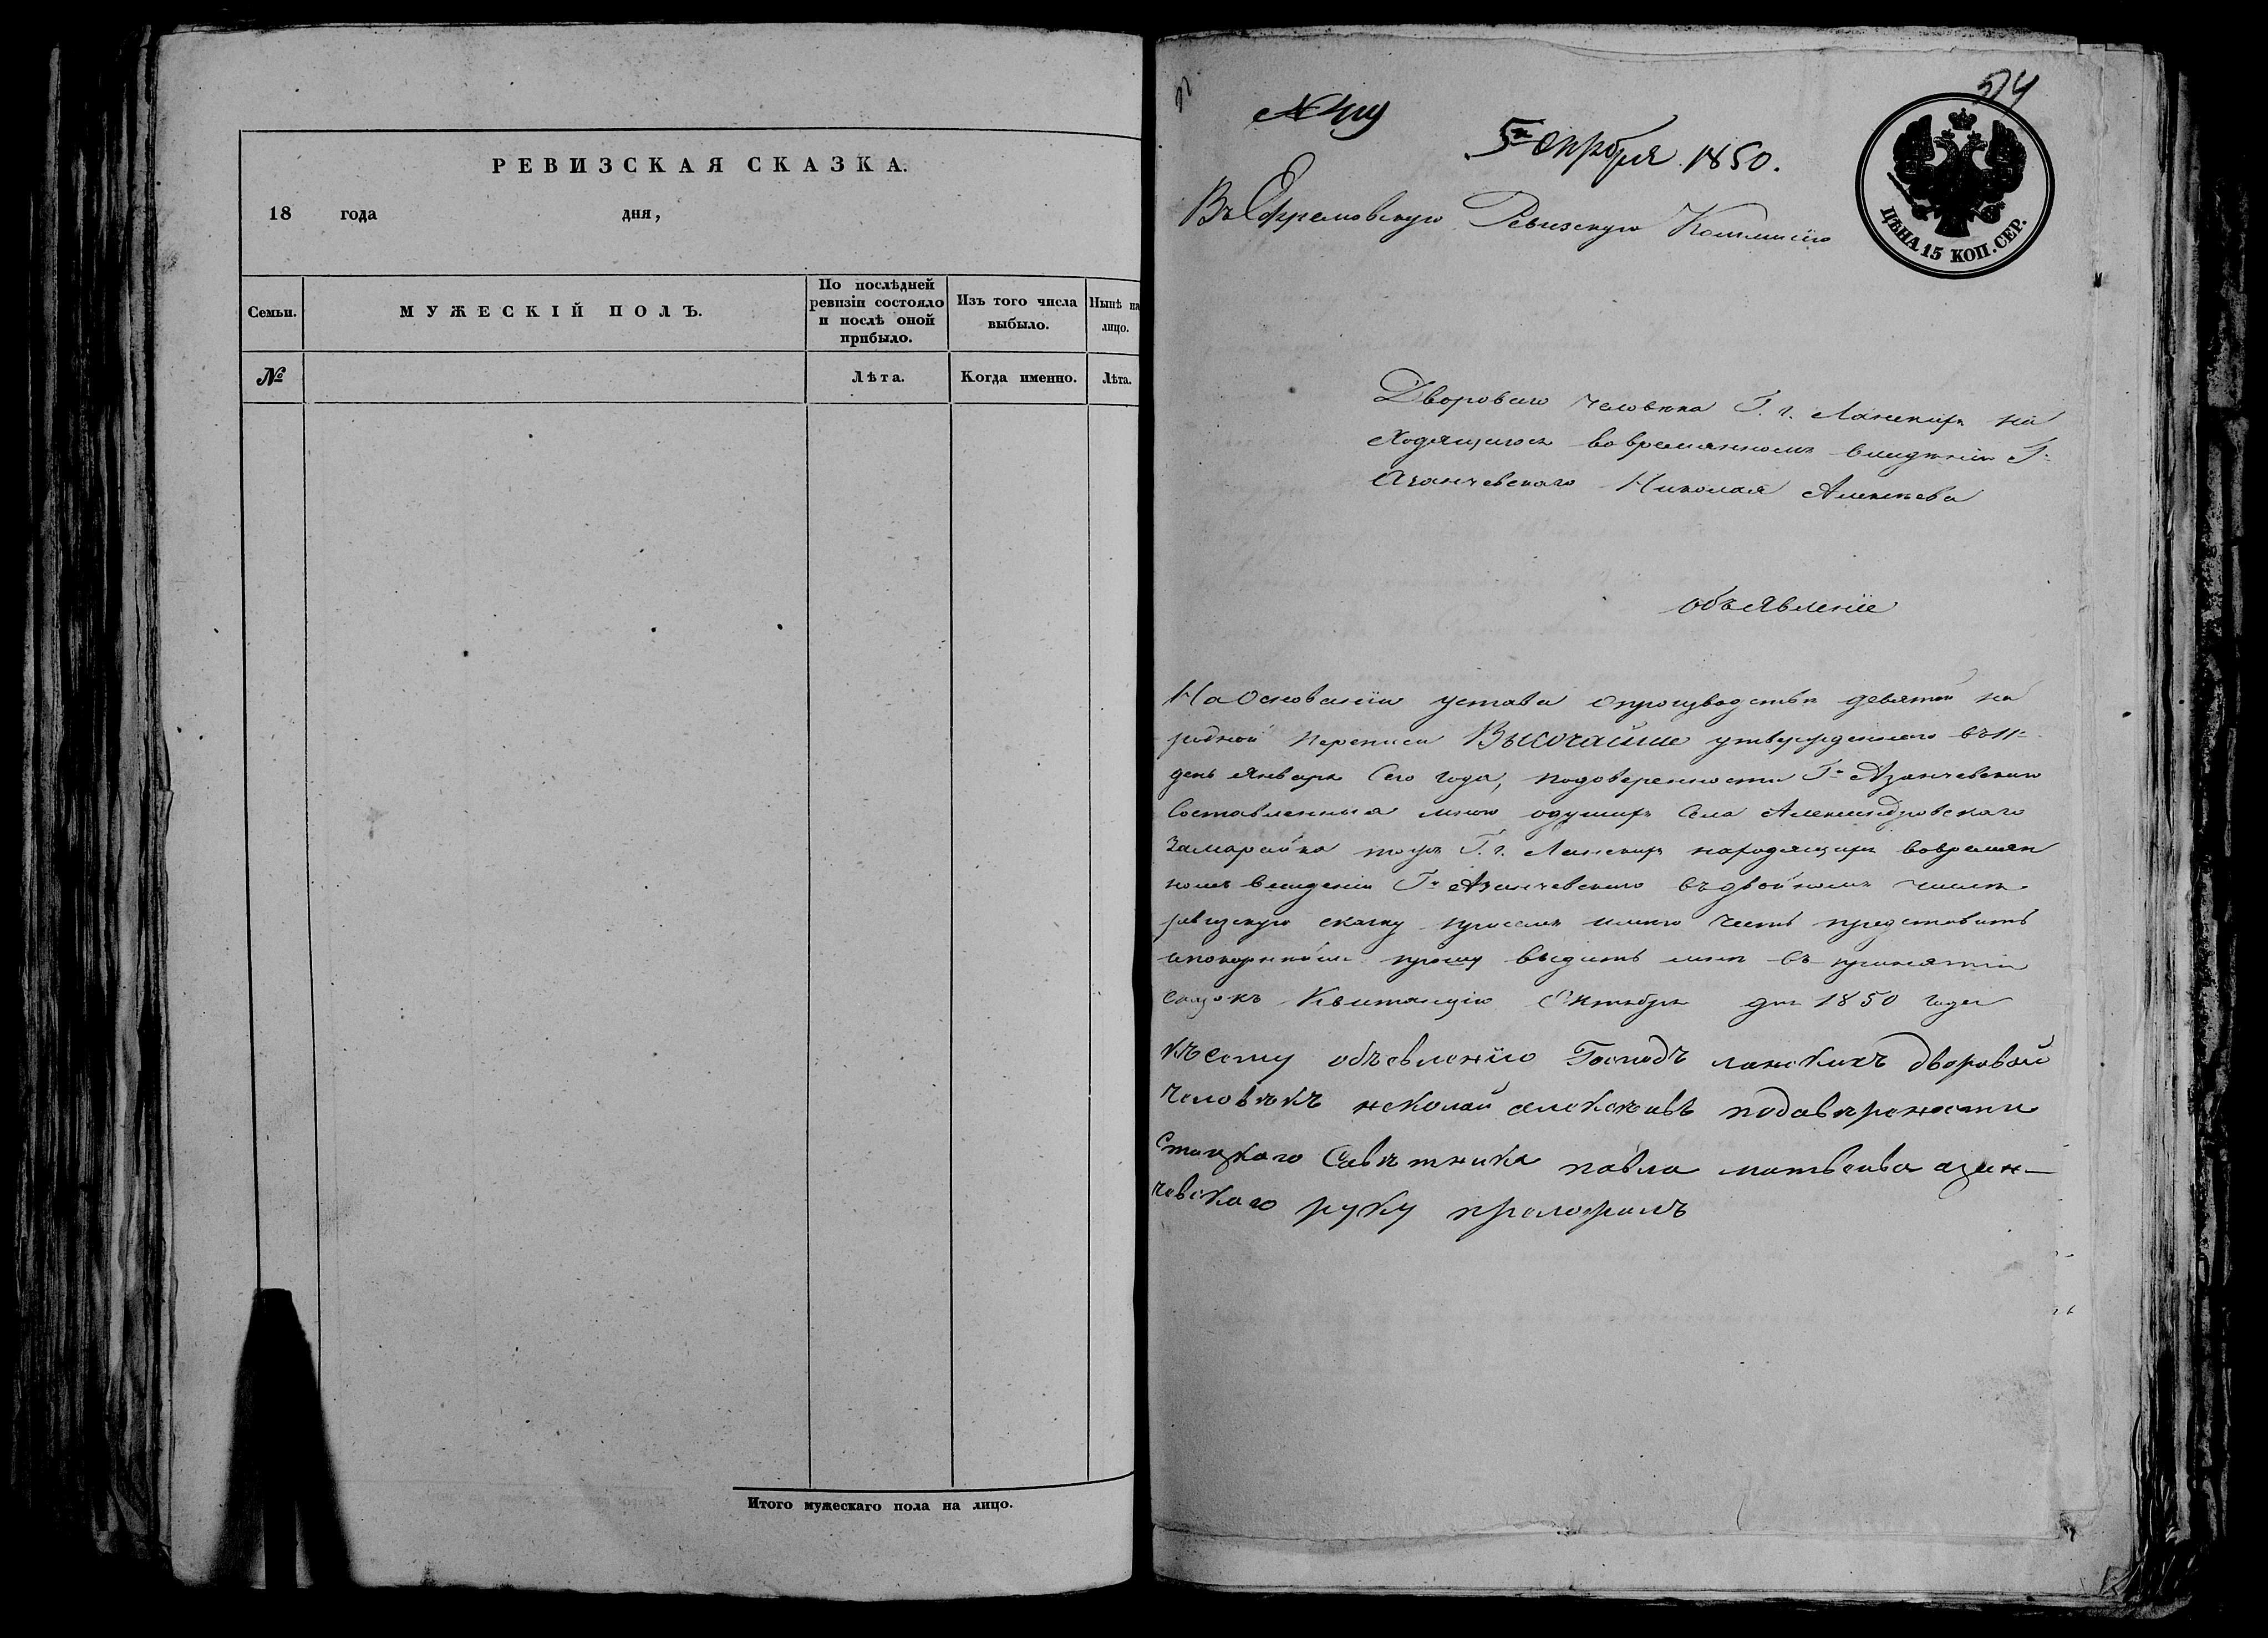 РЕВИЗСКАЯ СКАЗКА.
18 года дня,
Семьи.
МУЖЕСКІЙ ПОЛЪ.
По послѣдней ревизіи состояло и послѣ оной прибыло.
Изъ того числа выбыло.
Нынѣ на лицо.
№
Лѣта.
Когда именно.
Лѣта.
Итого мужескаго пола на лицо.
5го Октября 1850.
ЦѢНА 15 КОП. СЕР.
Въ Ефремовскую Ревизскую Коммисію
Двороваго человека Г. г. Ланскихъ на
ходящагося во временномъ владѣніи Г
Азанчевскаго Николая Алексѣева
объявленіе
На основаніи устава о производствѣ девятой на
родной переписи Высочайше утвержденнаго въ 11
день Января сего года, по доверенности Гна Азанчевскаго
составленныя мною о душахъ Села Александровскаго
Замарайка тожъ Г. г. Ланскихъ находящихъ во времян
номъ владеніи Гна Азанчевскаго въ двойномъ числѣ
ревизскую сказку при семъ имѣю честь представить
и покорнѣйше прошу выдать мнѣ въ принятіи
сказокъ Квитанцію Октября дня 1850 года
Къ сему объевленiю Господъ ланскихъ дворовой
человѣкъ неколай алексѣивъ по давѣрености
стацкаго Савѣтника павла матвеива азан-
чевскаго руку приложилъ